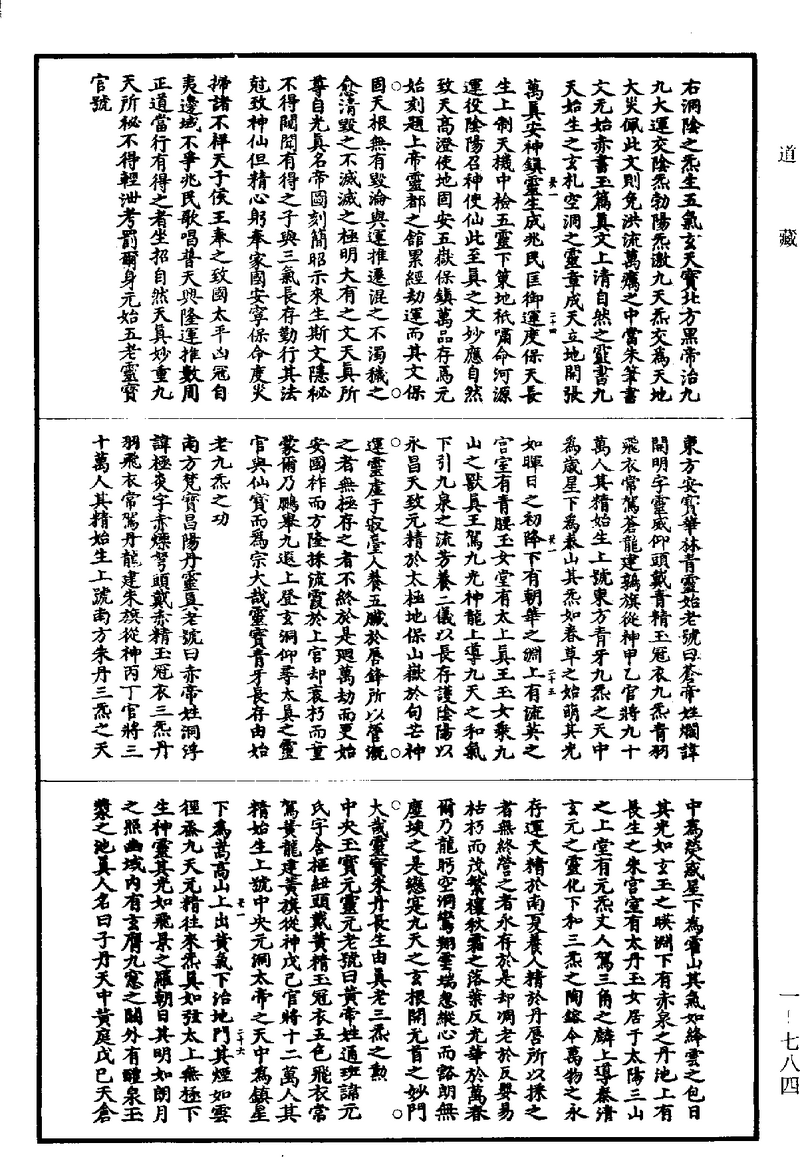 道藏
右洞陰之炁生五氣玄天寶北方黑帝治九
九大運交陰炁勃陽炁激九天炁交為天地
大災佩此文則免洪流萬癘之中當朱筆書
文元始赤書玉篇真文上清自然之靈書九
天始生之玄札空洞之靈章成天立地開張
萬真安神鎮靈生成兆民匡御運度保天長
生上制天機中檢五靈下策地祇嘯命河源
運役陰陽召神使仙此至真之文妙應自然
致天高澄使地固安五嶽保鎮萬品存焉元
始刻題上帝靈都之館累經劫運而其文保
固天根無有毀淪與運推遷混之不濁穢之
愈清毀之不滅滅之極明大有之文天真所
尊自光真名帝圖刻簡昭示來生斯文隱秘
不得闚闇有得之子與三氣長存勤行其法
尅致神仙但精心躬奉家國安寧保命度災
掃諸不祥天子侯王奉之致國太平凶寇自
夷邊域不爭兆民歌唱普天興隆運推數周
正道當行有得之者坐招自然天真妙重九
天所秘不得輕泄考罰爾身元始五老靈寶
官號
東方安寶華林青靈始老號曰蒼帝姓爓諱
開明字靈威仰頭戴青精玉冠衣九炁青羽
飛衣常駕蒼龍建鶉旗從神甲乙官將九十
萬人其精始生上號東方青牙九炁之天中
為歲星下為泰山其炁如春草之始萌其光
如暉日之初降下有朝華之淵上有流英之
宮室有青腰玉女堂有太上真王玉女乘九
山之獸真王駕九光神龍上導九天之和氣
下引九泉之流芳養二儀以長存護陰陽以
永昌天致元精於太極地保山嶽於句芒神
運靈虛于寂臺人養五臟於唇鋒所以營漱
之者無極存之者不終於是廻萬劫而更始
安國祚而方隆採流霞於上宮却衰朽而童
蒙爾乃鵬舉九遐上登玄洞仰尋太真之靈
官與仙寶而為宗大哉靈寶青牙長存由始
老九炁之功
南方梵寶昌陽丹靈真老號曰赤帝姓洞浮
諱極炎字赤熛弩頭戴赤精玉冠衣三炁丹
羽飛衣常駕丹龍建朱旗從神丙丁官將三
十萬人其精始生上號南方朱丹三炁之天
中為熒惑星下為霍山其氣如絳雲之包日
其光如玄玉之暎淵下有赤泉之丹池上有
長生之朱宮室有太丹玉女居于太陽三山
之上堂有元炁丈人駕三角之麟上導泰清
玄元之靈化下和三炁之陶鎔令萬物之永
存運天精於南夏養人精於丹唇所以採之
者無終營之者永存於是却凋老於反嬰易
枯朽而茂繁穰秋霜之落葉反光華於萬春
爾乃龍眄空洞鸞翔雲端忽縱心而豁朗無
塵埃之是戀寔九天之玄根開元首之妙門
大哉靈寶朱丹長生由真老三炁之勲
中央玉寶元靈元老號曰黃帝姓通班諱元
氏字含樞紐頭戴黃精玉冠衣五色飛衣常
駕黃龍建黃旗從神戊己官將十二萬人其
精始生上號中央元洞太帝之天中為鎮星
下為嵩高山上出黃氣下治地門其煙如雲
徑衝九天元精往來炁真如弦太上無極下
生神靈其光如飛景之羅朝日其明如朗月
之照幽域內有玄膺九窓之闕外有醴泉玉
漿之池真人名曰子丹天中黃庭戊己天倉
一－七八四